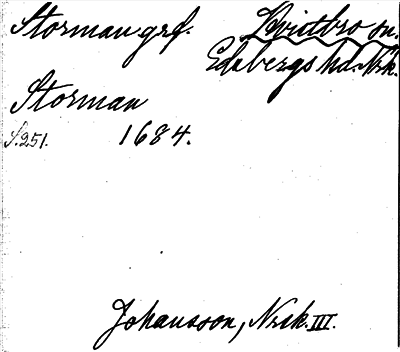 Storman grf. Kvistbro sn.
Edsbergs hd. Nrk.
Storman
S. 251. 1684.
Johansson, Nrsk. III.